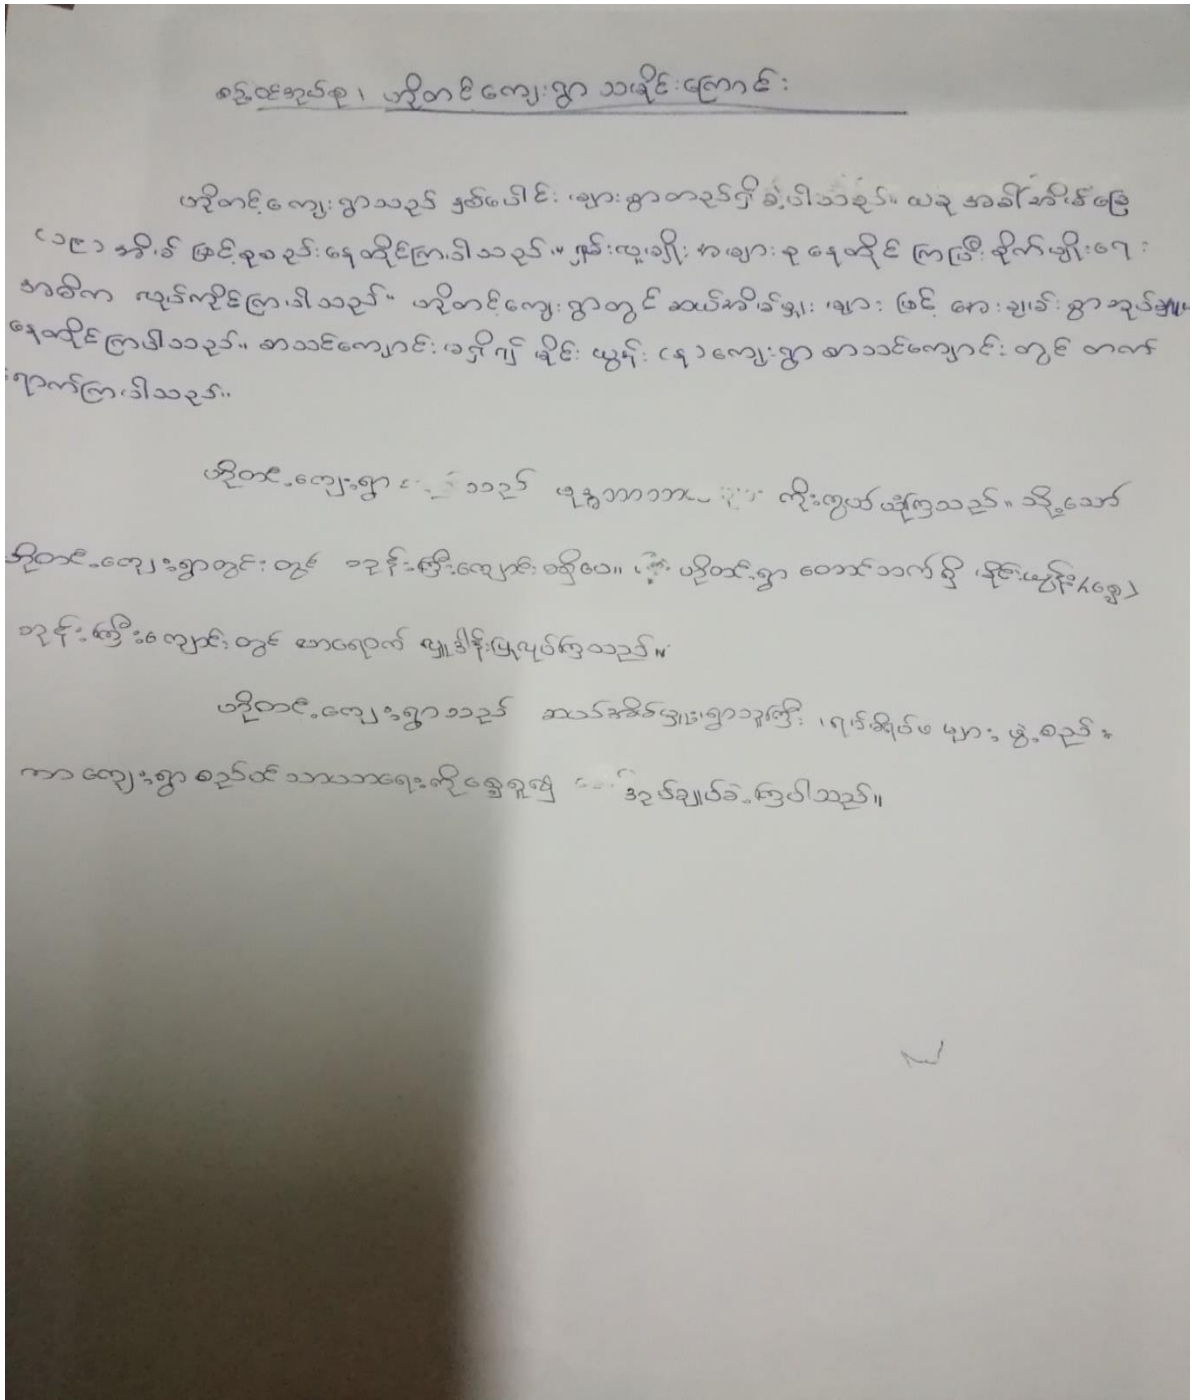 စဉ့်ဝင်းအုပ်စု၊ ဟိုတင့်ကျေးရွာ သမိုင်းကြောင်း
ဟိုတင့်ကျေးရွာသည် နှစ်ပေါင်း များစွာတည်ရှိခဲ့ပါသည်။ ယခု အခါ အိမ်ခြေ
(၁၉) အိမ် ဖြင့်စုစည်းနေထိုင်ကြပါသည်။ ရှမ်းလူမျိုး အများစု နေထိုင် ကြပြီး စိုက်ပျိုးရေး
အဓိက လုပ်ကိုင်ကြပါသည်။ ဟိုတင့်ကျေးရွာတွင် ဆယ်အိမ်မှူး များ ဖြင့် အေးချမ်းစွာအုပ်ချုပ်
နေထိုင်ကြပါသည်။ စာသင်ကျောင်း မရှိ၍ မိုင်းယွန်း (န) ကျေးရွာ စာသင်ကျောင်း တွင် တက်
ရောက်ကြပါသည်။
ဟိုတင့်ကျေးရွာ သည် ဗုဒ္ဓဘာသာ ကိုးကွယ်ယုံကြသည်။ သို့သော်
ဟိုတင့်ကျေးရွာတွင်းတွင် ဘုန်းကြီးကျောင်းမရှိပေ။ ဟိုတင့်ရွာ တောင်ဘက်ရှိ မိုင်းယွန်း
ဘုန်းကြီးကျောင်းတွင် လာရောက် လှူဒါန်းပြုလုပ်ကြသည်။
ဟိုတင့်ကျေးရွာသည် ဆယ်အိမ်မှူး၊ ရွာသူကြီး ၊ရပ်မိရပ်ဖ များ ဖွဲ့စည်း
ကာ ကျေးရွာစည်ပင်သာယာရေးကို ရှေးရှု၍ အုပ်ချုပ်ခဲ့ကြပါသည်။